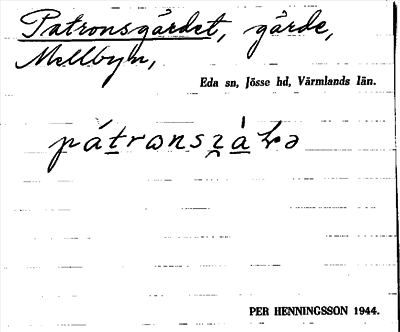 Patronsgärdet, gärde,
Mellbyn,
Eda sn, Jösse hd, Värmlands län.
PER HENNINGSSON 1944.